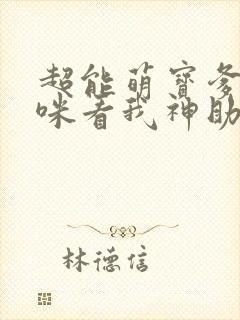 超能萌寶爹
咪看我神助
林德信